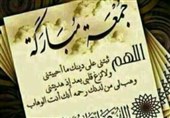 جمعة مباركة
اللهم
ثبتني على دينك ما أحييتني
ولا تزغ قلبي بعد إذ هديتني
وهب لي من لدنك رحمة إنك أنت الوهاب